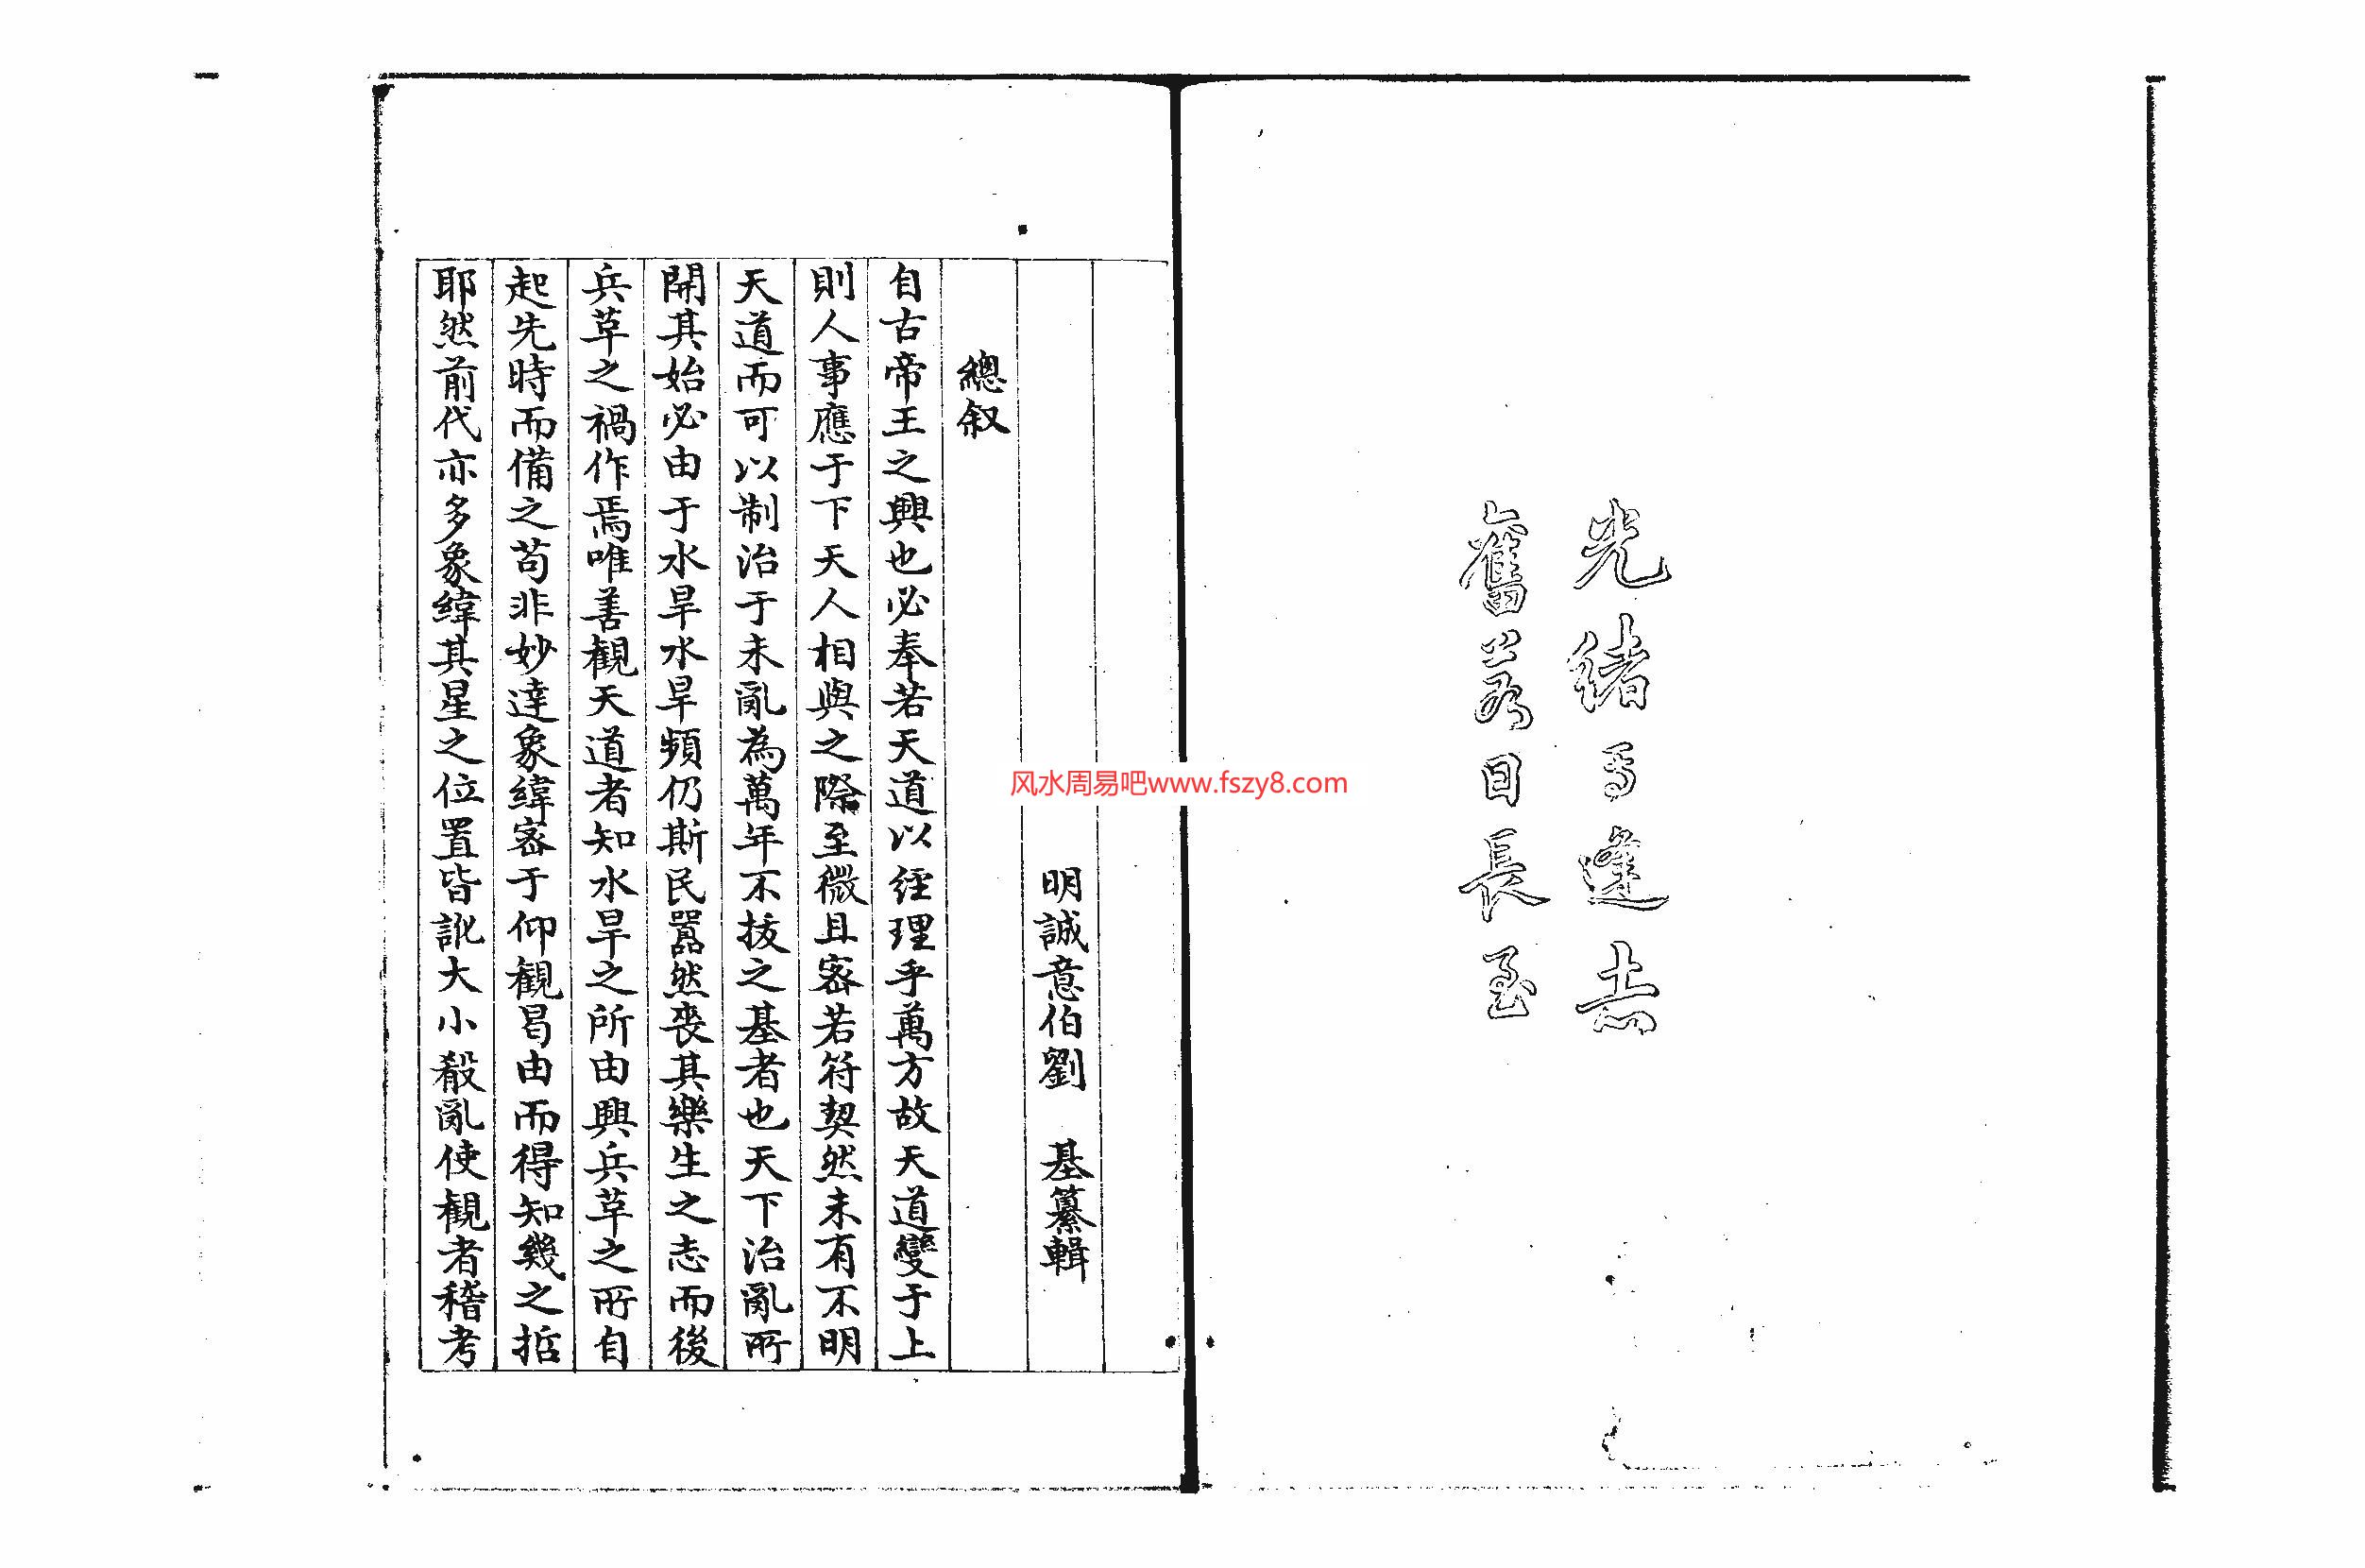 光緒
奮 日長至
明誠意伯劉 基纂輯
總叙
自古帝王之興也必奉若天道以經理乎萬方故天道變于上
則人事應于下天人相與之際至微且密若符契然未有不明
天道而可以制治于未亂為萬年不拔之基者也天下治亂所
開其始必由于水旱水旱頻仍斯民囂然喪其樂生之志而後
兵草之禍作焉唯善觀天道者知水旱之所由興兵草之所自
起先時而備之苟非妙達象緯密于仰觀曷由而得知幾之哲
耶然前代亦多象緯其星之位置皆訛大小殽亂使觀者稽考
风水周易吧www.fszy8.com